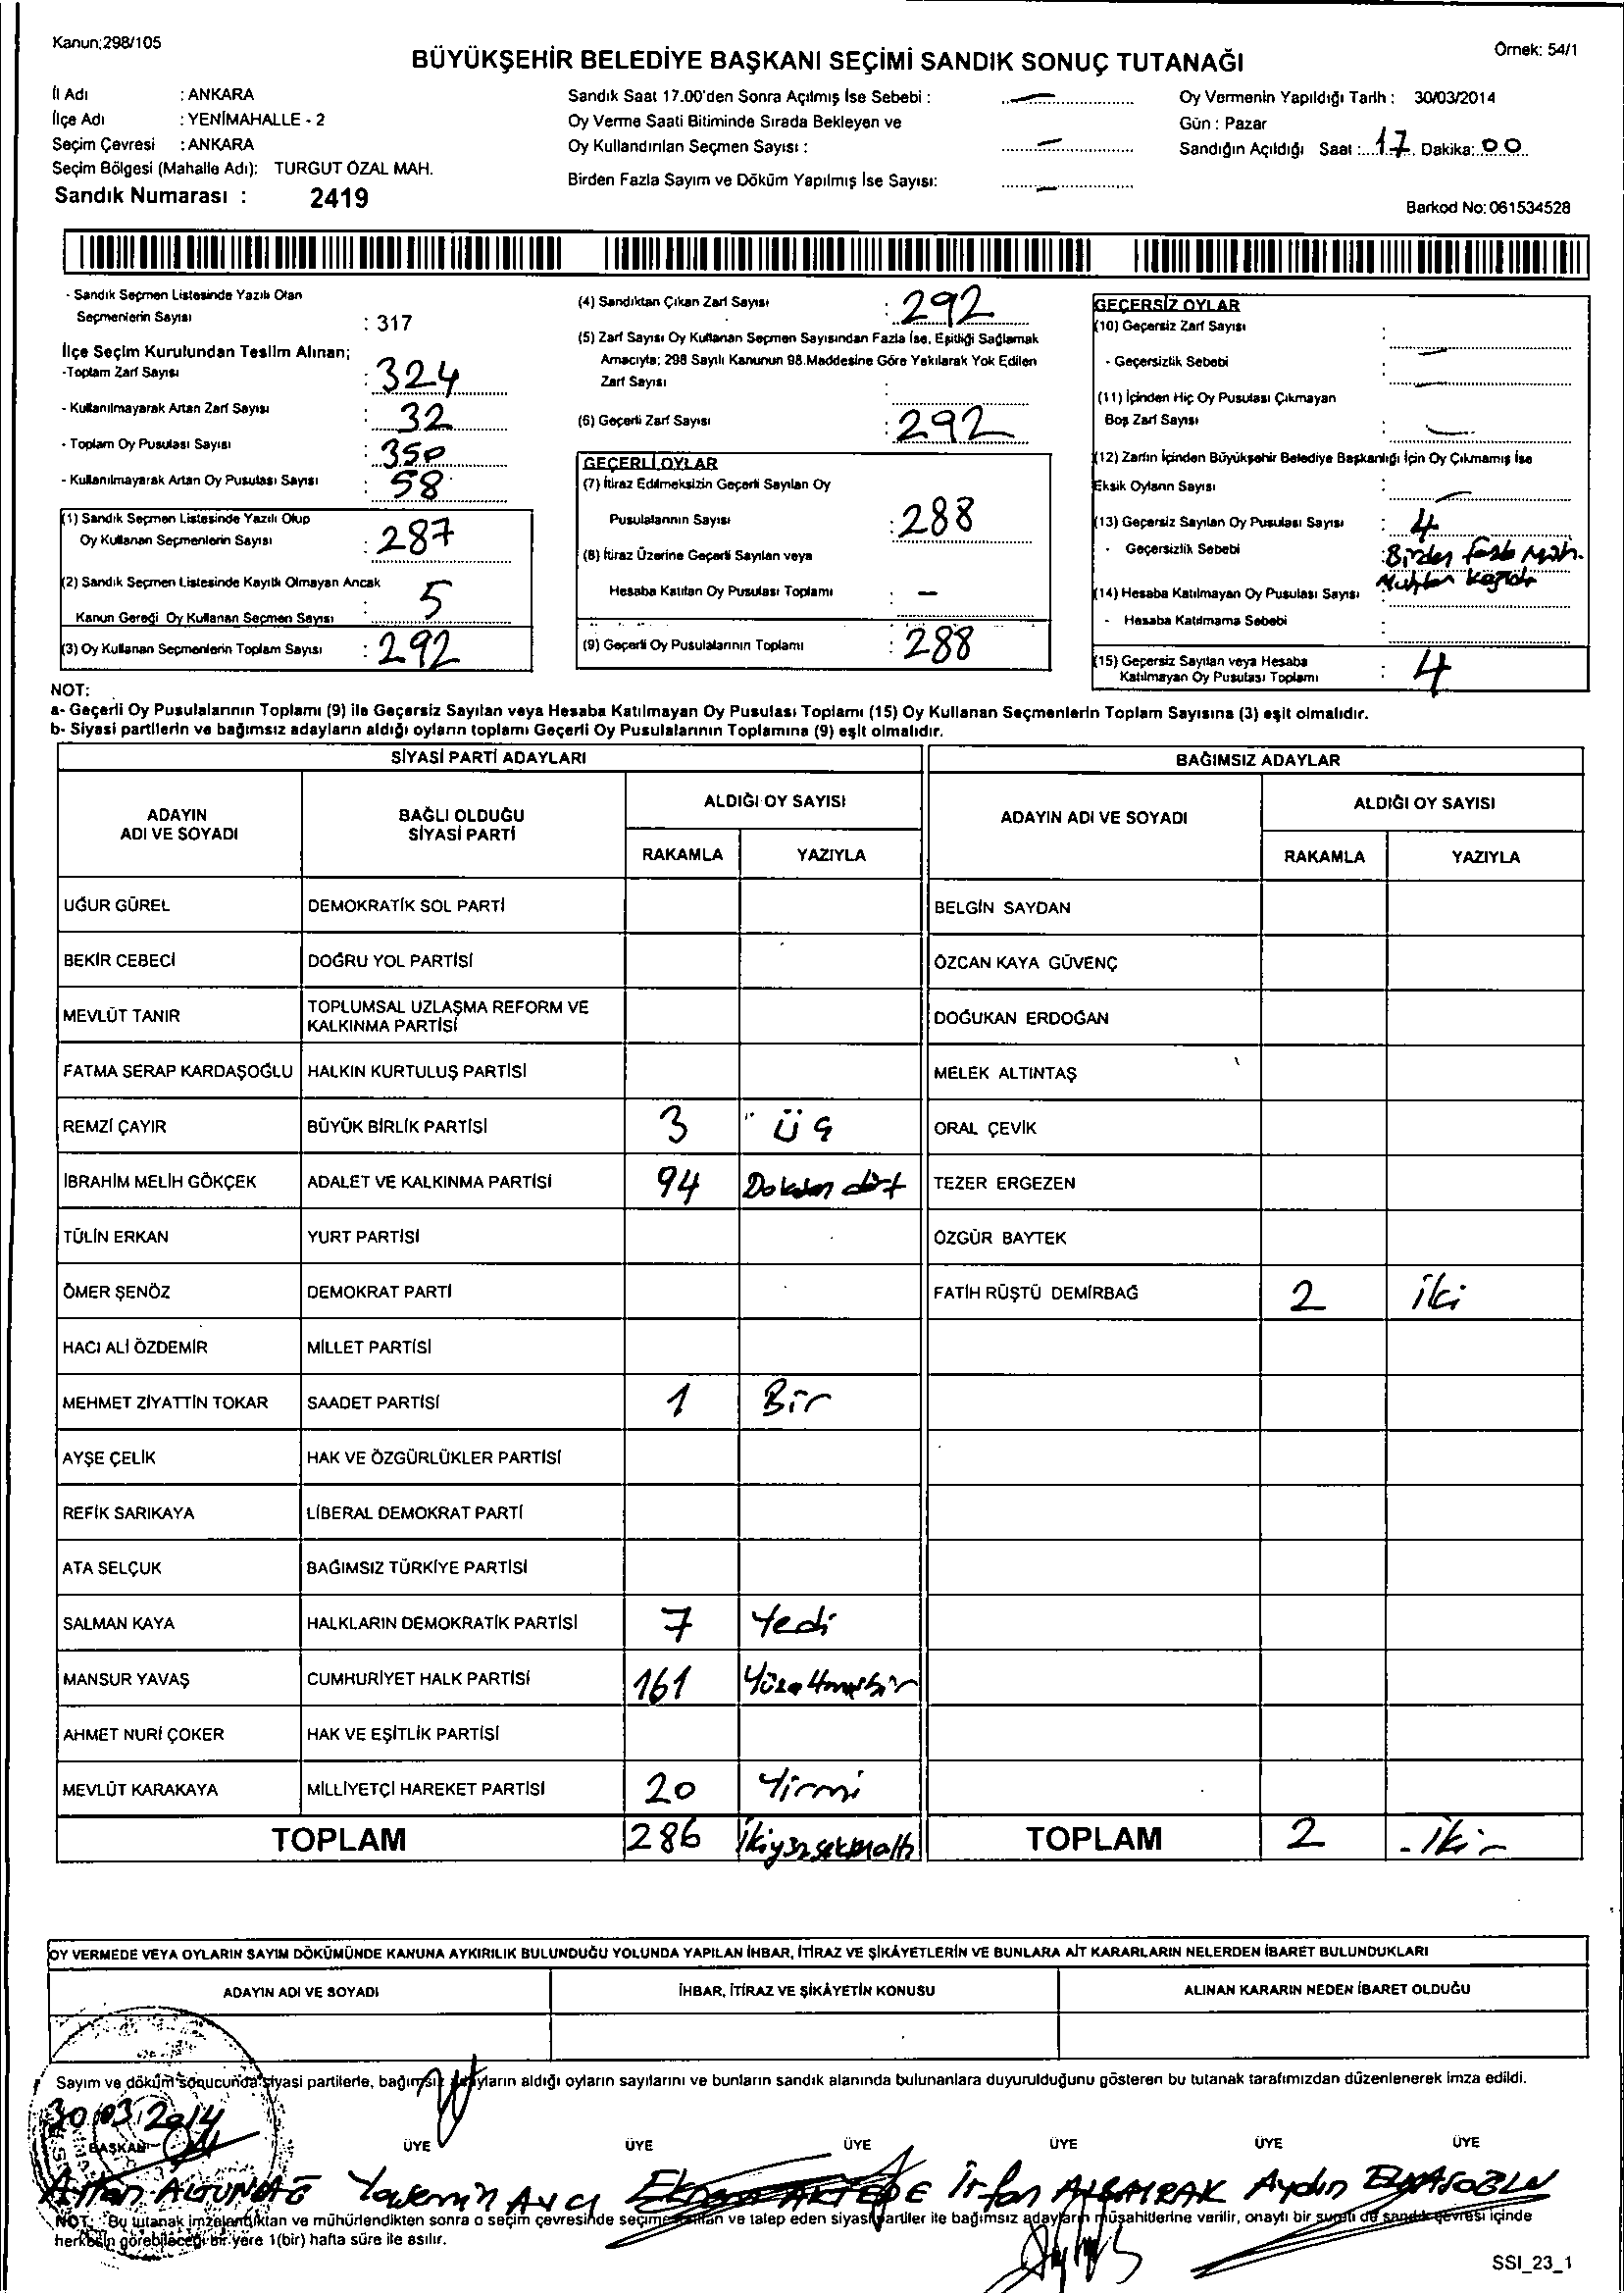 Kanun;298/105
Örnek: 54/1
BÜYÜKŞEHİR BELEDİYE BAŞKANI SEÇİMİ SANDIK SONUÇ TUTANAĞI
İl Adı : ANKARA
İlçe Adı : YENİMAHALLE - 2
Seçim Çevresi : ANKARA
Seçim Bölgesi (Mahalle Adı): TURGUT ÖZAL MAH.
Sandık Numarası : 2419
Sandık Saat 17.00'den Sonra Açılmış İse Sebebi : —
Oy Verme Saati Bitiminde Sırada Bekleyen ve
Oy Kullandırılan Seçmen Sayısı : —
Birden Fazla Sayım ve Döküm Yapılmış İse Sayısı: —
Oy Vermenin Yapıldığı Tarih : 30/03/2014
Gün : Pazar
Sandığın Açıldığı Saat : 17 Dakika: 00
Barkod No: 061534528
- Sandık Seçmen Listesinde Yazılı Olan
Seçmenlerin Sayısı : 317
İlçe Seçim Kurulundan Teslim Alınan;
-Toplam Zarf Sayısı : 324
- Kullanılmayarak Artan Zarf Sayısı : 32
- Toplam Oy Pusulası Sayısı : 350
- Kullanılmayarak Artan Oy Pusulası Sayısı : 58
(1) Sandık Seçmen Listesinde Yazılı Olup
Oy Kullanan Seçmenlerin Sayısı : 287
(2) Sandık Seçmen Listesinde Kayıtlı Olmayan Ancak
Kanun Gereği Oy Kullanan Seçmen Sayısı : 5
(3) Oy Kullanan Seçmenlerin Toplam Sayısı : 292
(4) Sandıktan Çıkan Zarf Sayısı : 292
(5) Zarf Sayısı Oy Kullanan Seçmen Sayısından Fazla İse, Eşitliği Sağlamak
Amacıyla; 298 Sayılı Kanunun 98.Maddesine Göre Yakılarak Yok Edilen
Zarf Sayısı :
(6) Geçerli Zarf Sayısı : 292
GEÇERLİ OYLAR
(7) İtiraz Edilmeksizin Geçerli Sayılan Oy
Pusulalarının Sayısı : 288
(8) İtiraz Üzerine Geçerli Sayılan veya
Hesaba Katılan Oy Pusulası Toplamı : —
(9) Geçerli Oy Pusulalarının Toplamı : 288
GEÇERSİZ OYLAR
(10) Geçersiz Zarf Sayısı : —
- Geçersizlik Sebebi : —
(11) İçinden Hiç Oy Pusulası Çıkmayan
Boş Zarf Sayısı : —
(12) Zarfın İçinden Büyükşehir Belediye Başkanlığı İçin Oy Çıkmamış İse
Eksik Oyların Sayısı : —
(13) Geçersiz Sayılan Oy Pusulası Sayısı : 4
- Geçersizlik Sebebi : Birden fazla Müh.
(14) Hesaba Katılmayan Oy Pusulası Sayısı
- Hesaba Katılmama Sebebi :
(15) Geçersiz Sayılan veya Hesaba
Katılmayan Oy Pusulası Toplamı : 4
NOT:
a- Geçerli Oy Pusulalarının Toplamı (9) ile Geçersiz Sayılan veya Hesaba Katılmayan Oy Pusulası Toplamı (15) Oy Kullanan Seçmenlerin Toplam Sayısına (3) eşit olmalıdır.
b- Siyasi partilerin ve bağımsız adayların aldığı oyların toplamı Geçerli Oy Pusulalarının Toplamına (9) eşit olmalıdır.
SİYASİ PARTİ ADAYLARI
BAĞIMSIZ ADAYLAR
ADAYIN ADI VE SOYADI
BAĞLI OLDUĞU SİYASİ PARTİ
ALDIĞI OY SAYISI
RAKAMLA YAZIYLA
ADAYIN ADI VE SOYADI
ALDIĞI OY SAYISI
RAKAMLA YAZIYLA
UĞUR GÜREL DEMOKRATİK SOL PARTİ BELGİN SAYDAN
BEKİR CEBECİ DOĞRU YOL PARTİSİ ÖZCAN KAYA GÜVENÇ
MEVLÜT TANIR TOPLUMSAL UZLAŞMA REFORM VE KALKINMA PARTİSİ DOĞUKAN ERDOĞAN
FATMA SERAP KARDAŞOĞLU HALKIN KURTULUŞ PARTİSİ MELEK ALTINTAŞ
REMZİ ÇAYIR BÜYÜK BİRLİK PARTİSİ 3 üç ORAL ÇEVİK
İBRAHİM MELİH GÖKÇEK ADALET VE KALKINMA PARTİSİ 94 Doksan dört TEZER ERGEZEN
TÜLİN ERKAN YURT PARTİSİ ÖZGÜR BAYTEK
ÖMER ŞENÖZ DEMOKRAT PARTİ FATİH RÜŞTÜ DEMİRBAĞ 2 iki
HACI ALİ ÖZDEMİR MİLLET PARTİSİ
MEHMET ZİYATTİN TOKAR SAADET PARTİSİ 1 Bir
AYŞE ÇELİK HAK VE ÖZGÜRLÜKLER PARTİSİ
REFİK SARIKAYA LİBERAL DEMOKRAT PARTİ
ATA SELÇUK BAĞIMSIZ TÜRKİYE PARTİSİ
SALMAN KAYA HALKLARIN DEMOKRATİK PARTİSİ 7 Yedi
MANSUR YAVAŞ CUMHURİYET HALK PARTİSİ 161 Yüzaltmışbir
AHMET NURİ ÇOKER HAK VE EŞİTLİK PARTİSİ
MEVLÜT KARAKAYA MİLLİYETÇİ HAREKET PARTİSİ 20 Yirmi
TOPLAM 286 İkiyüzseksenaltı TOPLAM 2 - İki -
OY VERMEDE VEYA OYLARIN SAYIM DÖKÜMÜNDE KANUNA AYKIRILIK BULUNDUĞU YOLUNDA YAPILAN İHBAR, İTİRAZ VE ŞİKÂYETLERİN VE BUNLARA AİT KARARLARIN NELERDEN İBARET BULUNDUKLARI
ADAYIN ADI VE SOYADI İHBAR, İTİRAZ VE ŞİKÂYETİN KONUSU ALINAN KARARIN NEDEN İBARET OLDUĞU
Sayım ve döküm sonucunda siyasi partilerle, bağımsız adayların aldığı oyların sayılarını ve bunların sandık alanında bulunanlara duyurulduğunu gösteren bu tutanak tarafımızdan düzenlenerek imza edildi.
30.03.2014
BAŞKAN ÜYE ÜYE ÜYE ÜYE ÜYE ÜYE
ALTUNDAĞ Yasemin Avcı AKTEPE İrfan ALBAYRAK Aydın
NOT: Bu tutanak imzalandıktan ve mühürlendikten sonra o seçim çevresinde seçime katılan ve talep eden siyasi partiler ile bağımsız adayların müşahitlerine verilir, onaylı bir sureti de sandık çevresi içinde
herkesin görebileceği bir yere 1(bir) hafta süre ile asılır.
SSI_23_1